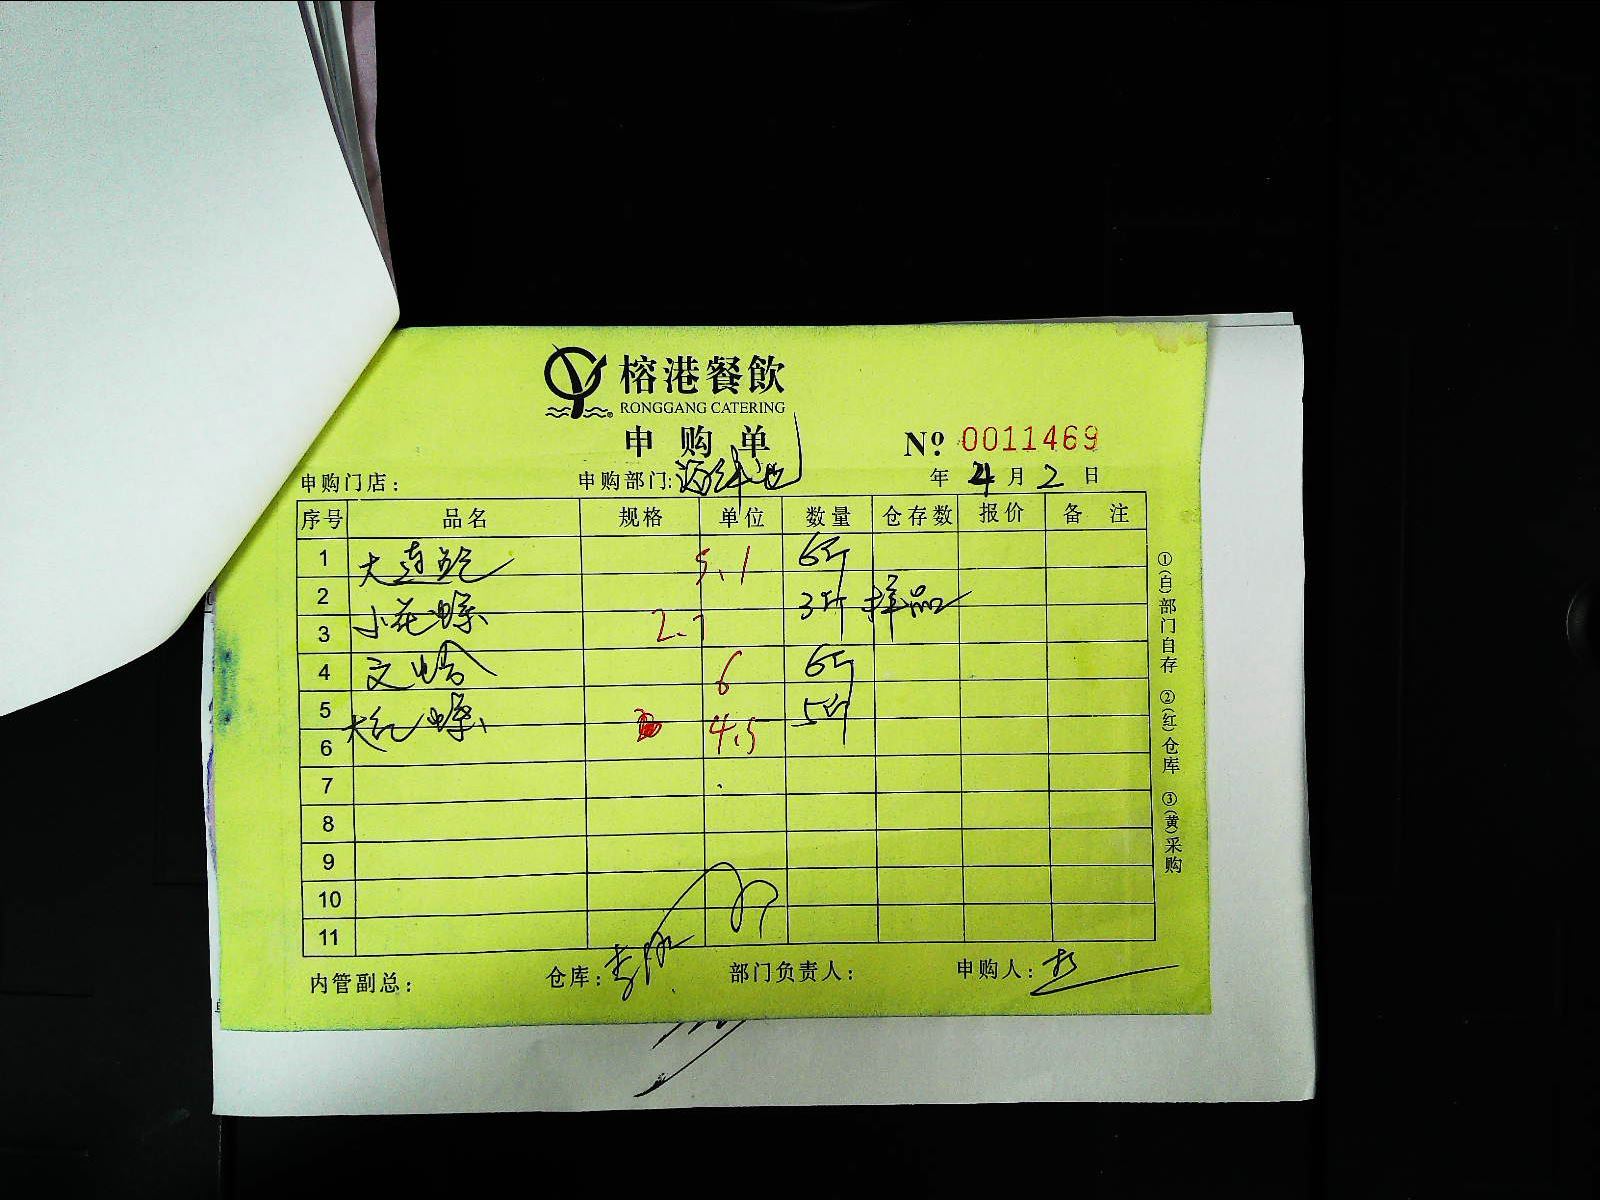 榕港餐飲
RONGGANG CATERING
申购单
Nº 0011469
申购门店： 申购部门: 年 4 月 2 日
序号 品名 规格 单位 数量 仓存数 报价 备注
1 大连鲍 5.1 6斤
2 小花螺 2.7 3斤 样品
3
4 文蛤 6 6斤
5 大红螺 4.5 5斤
6
7
8
9
10
11
内管副总： 仓库： 部门负责人： 申购人：
①(白)部门自存 ②(红)仓库 ③(黄)采购